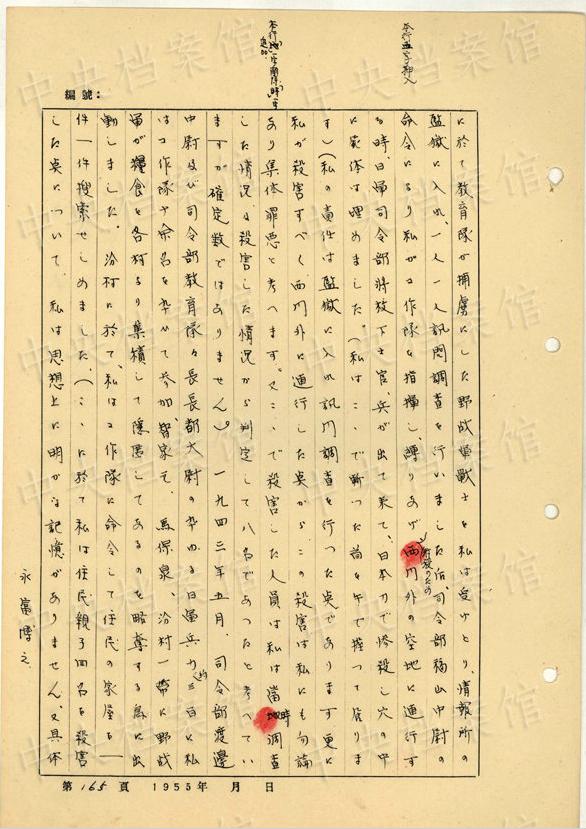 本行五字押入
本行「地」一字削除「時」一字追加
編號：
に於て教育隊が捕虜にした野战軍戰士を私は受けとり、情報所の
監獄に入れ一人一人訊問調査を行いました后司令部福山中尉の
命令により私が工作隊を指揮し縛りあげ解放のため西門外の空地に連行す
る時、日帰司令部将校下士官、兵が出て来て、日本刀で惨殺し穴の中
に家体は埋めました。（私はここで斬つた首を手で握つて居りま
す）（私の責任は監獄に入れ訊問調査を行つた点であります更に
私が殺害すべく西門外に連行した点からこの殺害は私にも勿論
あり集体罪悪と考へます。又ここで殺害した人員は私は當時調査
した情況及殺害した情況から判定して八名であつたと考へてい
ますが確定数ではありません） 一九四三年五月、司令部渡邊
中尉及び司令部教育隊々長長都大尉の卆ゆる日軍兵力約三百に私
は工作隊十余名を卆いて参加、智家庄、馬保泉、汾村一帶に野战
軍が糧食を各村より集積して隠匿してあるのを略奪する為に出
動しました。汾村に於て、私は工作隊に命令して住民の家屋を一
件一件搜索せしめました、（ここに於て私は住民親子四名を殺害
した点について、私は思想上に明かな記憶がありません、又具体
永富博之
第 165 頁 1955年 月 日
中央档案馆